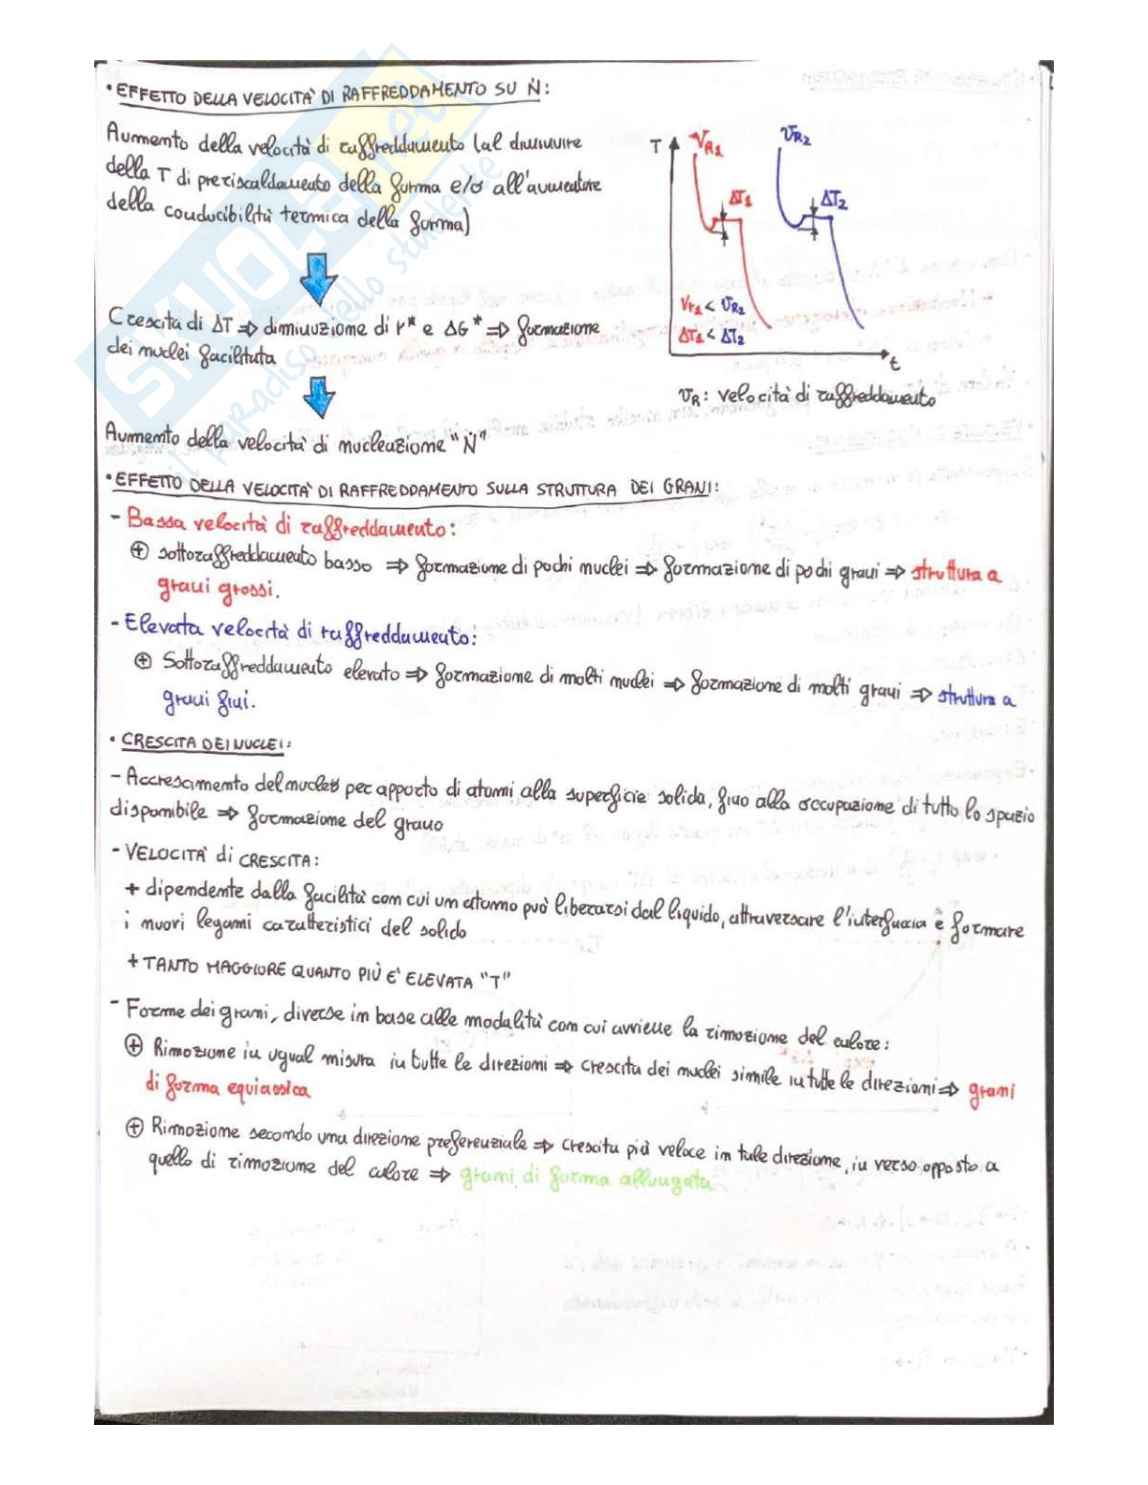 • EFFETTO DELLA VELOCITA' DI RAFFREDDAMENTO SU Ṅ:
Aumento della velocità di raffreddamento (al diminuire
della T di preriscaldamento della forma e/o all'aumentare
della conducibilità termica della forma)
T
VR1
VR2
ΔT1
ΔT2
Vr1 < VR2
ΔT1 < ΔT2
t
VR: velocità di raffreddamento
Crescita di ΔT ⇒ diminuzione di r* e ΔG* ⇒ formazione
dei nuclei facilitata
Aumento della velocità di nucleazione "Ṅ"
• EFFETTO DELLA VELOCITA' DI RAFFREDDAMENTO SULLA STRUTTURA DEI GRANI:
- Bassa velocità di raffreddamento:
⊕ sottoraffreddamento basso ⇒ formazione di pochi nuclei ⇒ formazione di pochi grani ⇒ struttura a
grani grossi.
- Elevata velocità di raffreddamento:
⊕ Sottoraffreddamento elevato ⇒ formazione di molti nuclei ⇒ formazione di molti grani ⇒ struttura a
grani fini.
• CRESCITA DEI NUCLEI:
- Accrescimento del nucleo per apporto di atomi alla superficie solida, fino alla occupazione di tutto lo spazio
disponibile ⇒ formazione del grano
- VELOCITA' di CRESCITA:
+ dipendente dalla facilità con cui un atomo può liberarsi dal liquido, attraversare l'interfaccia e formare
i nuovi legami caratteristici del solido
+ TANTO MAGGIORE QUANTO PIÙ E' ELEVATA "T"
- Forme dei grani, diverse in base alle modalità con cui avviene la rimozione del calore:
⊕ Rimozione in ugual misura in tutte le direzioni ⇒ crescita dei nuclei simile in tutte le direzioni ⇒ grani
di forma equiassica
⊕ Rimozione secondo una direzione preferenziale ⇒ crescita più veloce in tale direzione, in verso opposto a
quello di rimozione del calore ⇒ grani di forma allungata
SKUOLA.net
il paradiso dello studente